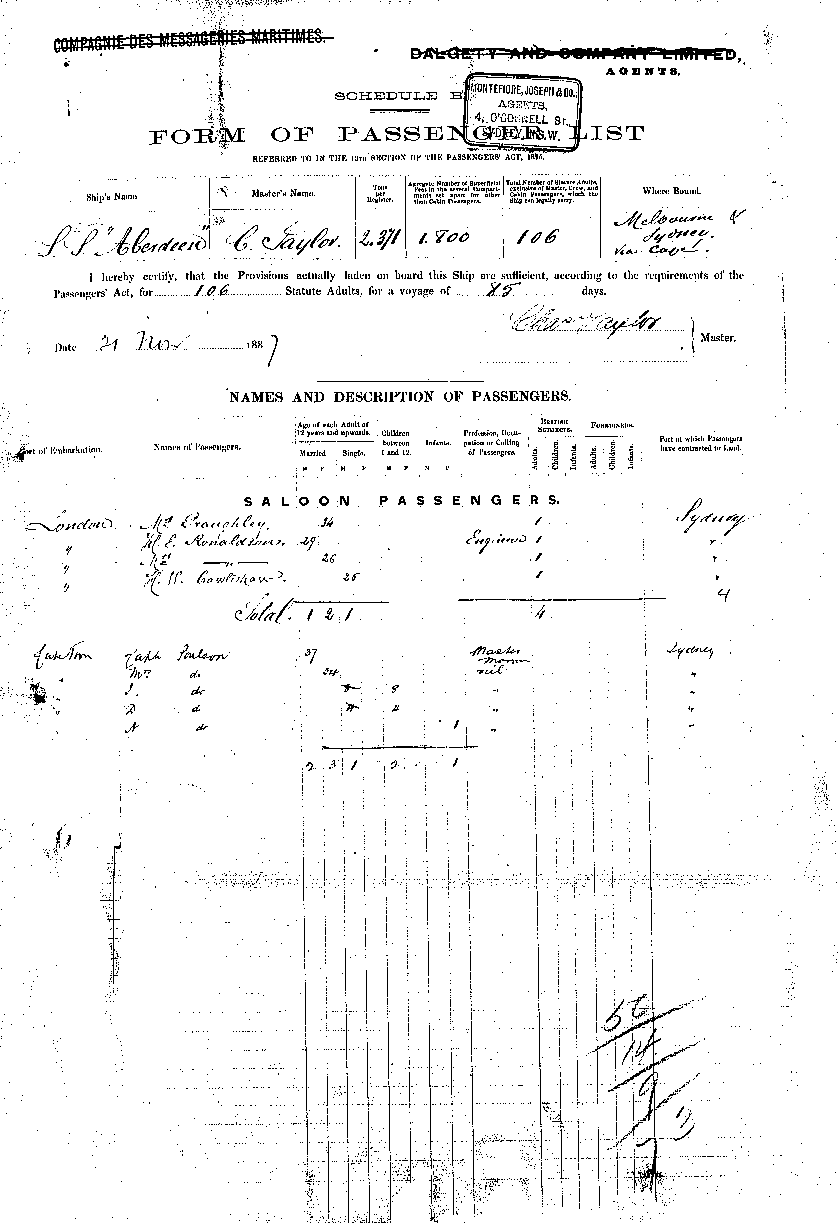 COMPAGNIE DES MESSAGERIES MARITIMES.
DALGETY AND COMPANY LIMITED,
AGENTS.
SCHEDULE B
MONTEFIORE, JOSEPH & Co.
AGENTS,
4, O'CONNELL St.,
SYDNEY, N.S.W.
FORM OF PASSENGER LIST
REFERRED TO IN THE 13TH SECTION OF THE PASSENGERS' ACT, 1855.
Ship's Name Master's Name. Tons per Register. Aggregate Number of Superficial Feet in the several Compartments set apart for other than Cabin Passengers. Total Number of Statute Adults, exclusive of Master, Crew, and Cabin Passengers, which the Ship can legally carry. Where Bound.
S.S "Aberdeen" C. Taylor. 2.371 1.800 106 Melbourne & Sydney. via Cape.
I hereby certify, that the Provisions actually laden on board this Ship are sufficient, according to the requirements of the
Passengers' Act, for 106 Statute Adults, for a voyage of 85 days.
Chas Taylor
Date 21 Nov 1887 Master.
NAMES AND DESCRIPTION OF PASSENGERS.
Port of Embarkation. Names of Passengers. Age of each Adult of 12 years and upwards. Married Single. Children between 1 and 12. Infants. Profession, Occupation or Calling of Passengers. BRITISH SUBJECTS. Adults. Children. Infants. FOREIGNERS. Adults. Children. Infants. Port at which Passengers have contracted to Land.
M F M F M F M F
SALOON PASSENGERS.
London 34 1 Sydney
" H. E. 29 Engineer 1 "
" Mrs —"— 26 1 "
" H. W. 25 1 "
4
Total. 1 2 1 4
Cape Town Poulson 37 Master Sydney
" Mrs do 34 "
" J. do 8 " "
" D do 4 " "
N do 1 " "
2 3 1 2 1
56
14
9